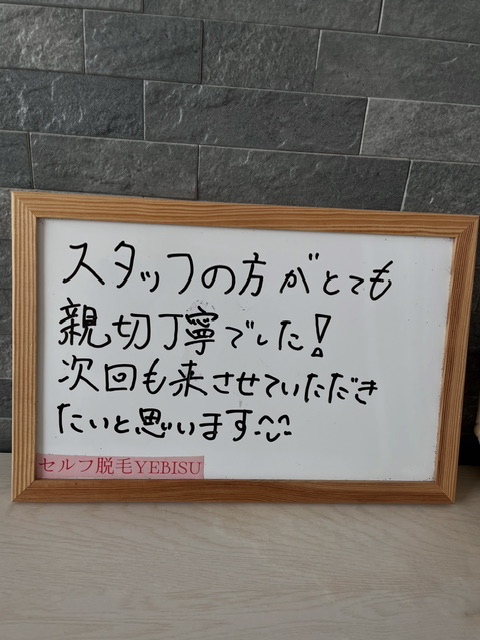 スタッフの方がとても
親切丁寧でした!
次回も来させていただき
たいと思います^^
セルフ脱毛YEBISU